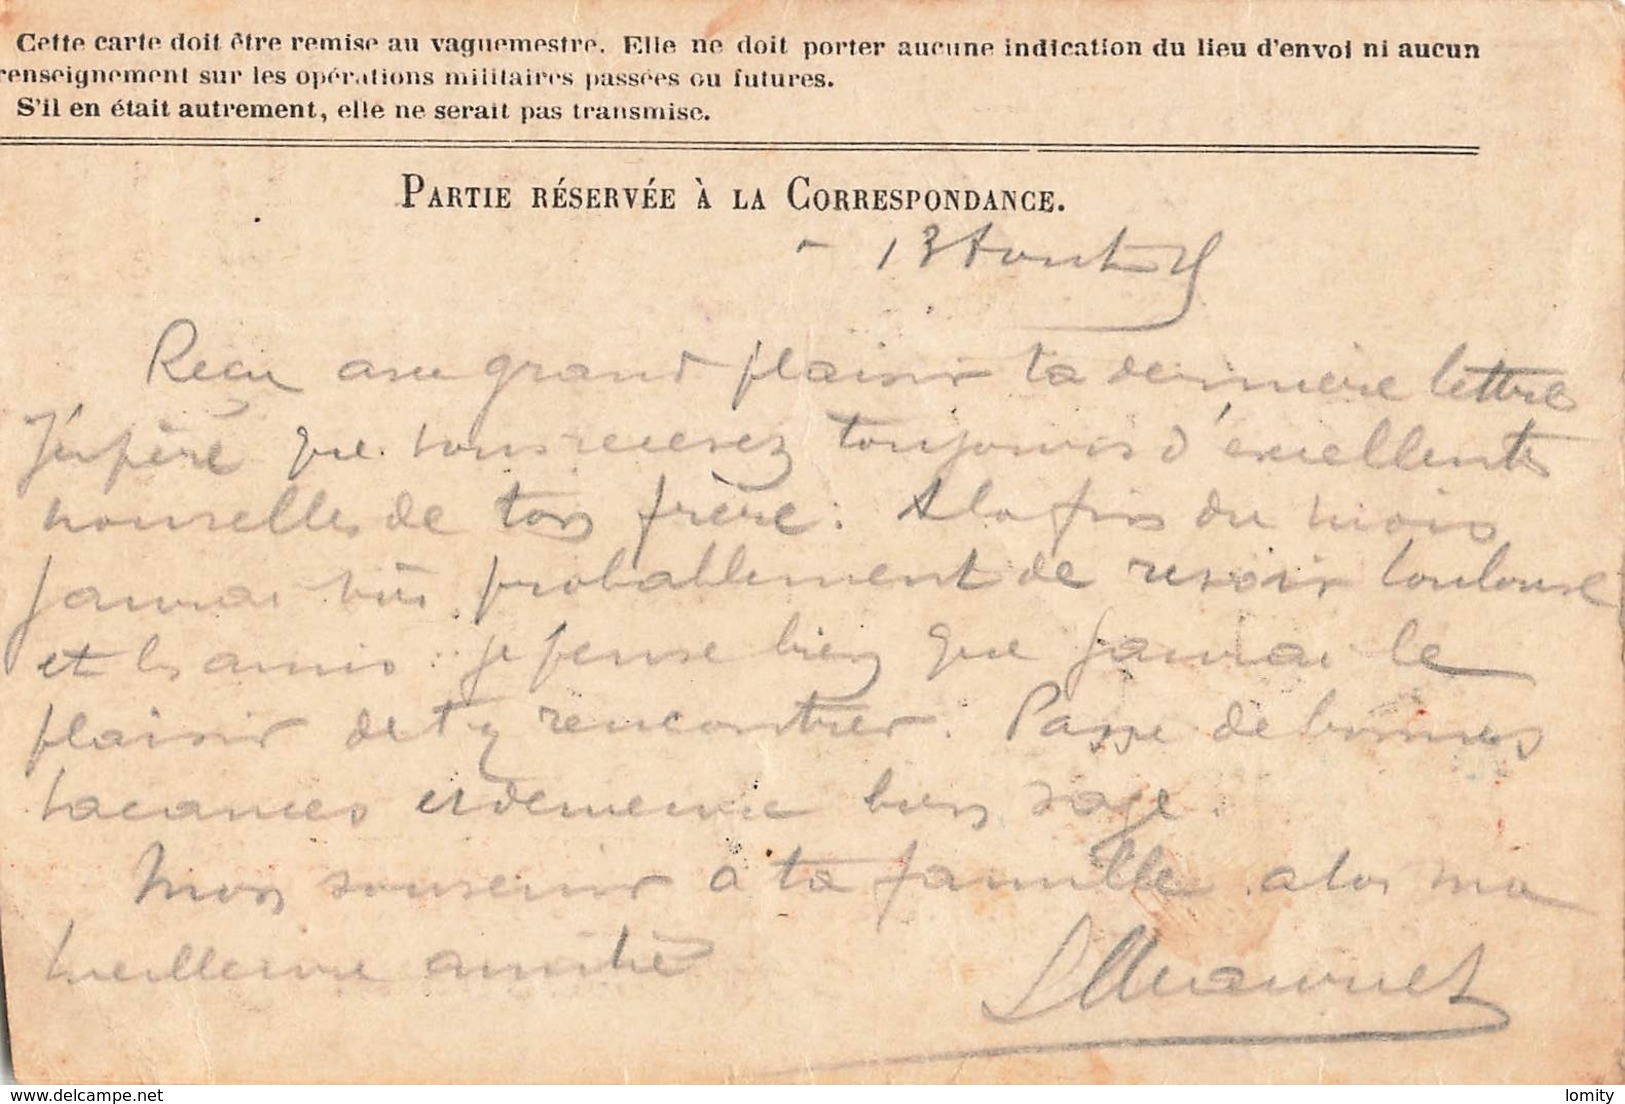 Cette carte doit être remise au vaguemestre. Elle ne doit porter aucune indication du lieu d'envoi ni aucun
renseignement sur les opérations militaires passées ou futures.
S'il en était autrement, elle ne serait pas transmise.
PARTIE RÉSERVÉE À LA CORRESPONDANCE.
13 Aout
Reçu avec grand plaisir ta dernière lettre
J'espère que vous recevez toujours d'excellentes
nouvelles de ton frère. A la fin du mois
j'aurai probablement de revoir Toulouse
et les amis. je pense bien que j'aurai le
plaisir de t'y rencontrer. Passe de bonnes
vacances et demeure bien sage.
Mon souvenir à ta famille. a toi ma
meilleure amitié
www.delcampe.net
lomity